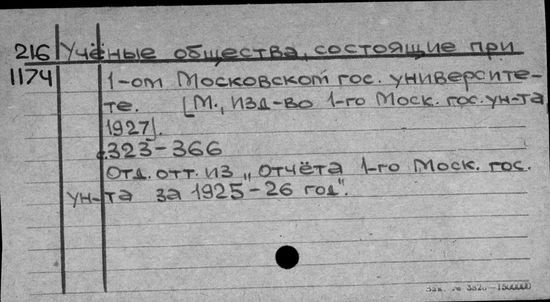 216 Учёные общества, состоящие при
1174 1-ом Московском гос. университе-
те. [М., изд-во 1-го Моск. гос. ун-та,
1927].
с.323-366
Отд. отт. из „Отчёта 1-го Моск. гос.
ун-та за 1925-26 год".
Зак. № 3520-1500000